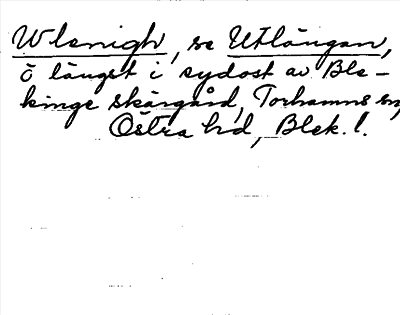 Wlsnigh, se Utlängan,
ö längst i sydost av Ble-
kinge skärgård, Torhamns sn,
Östra hd, Blek. l.